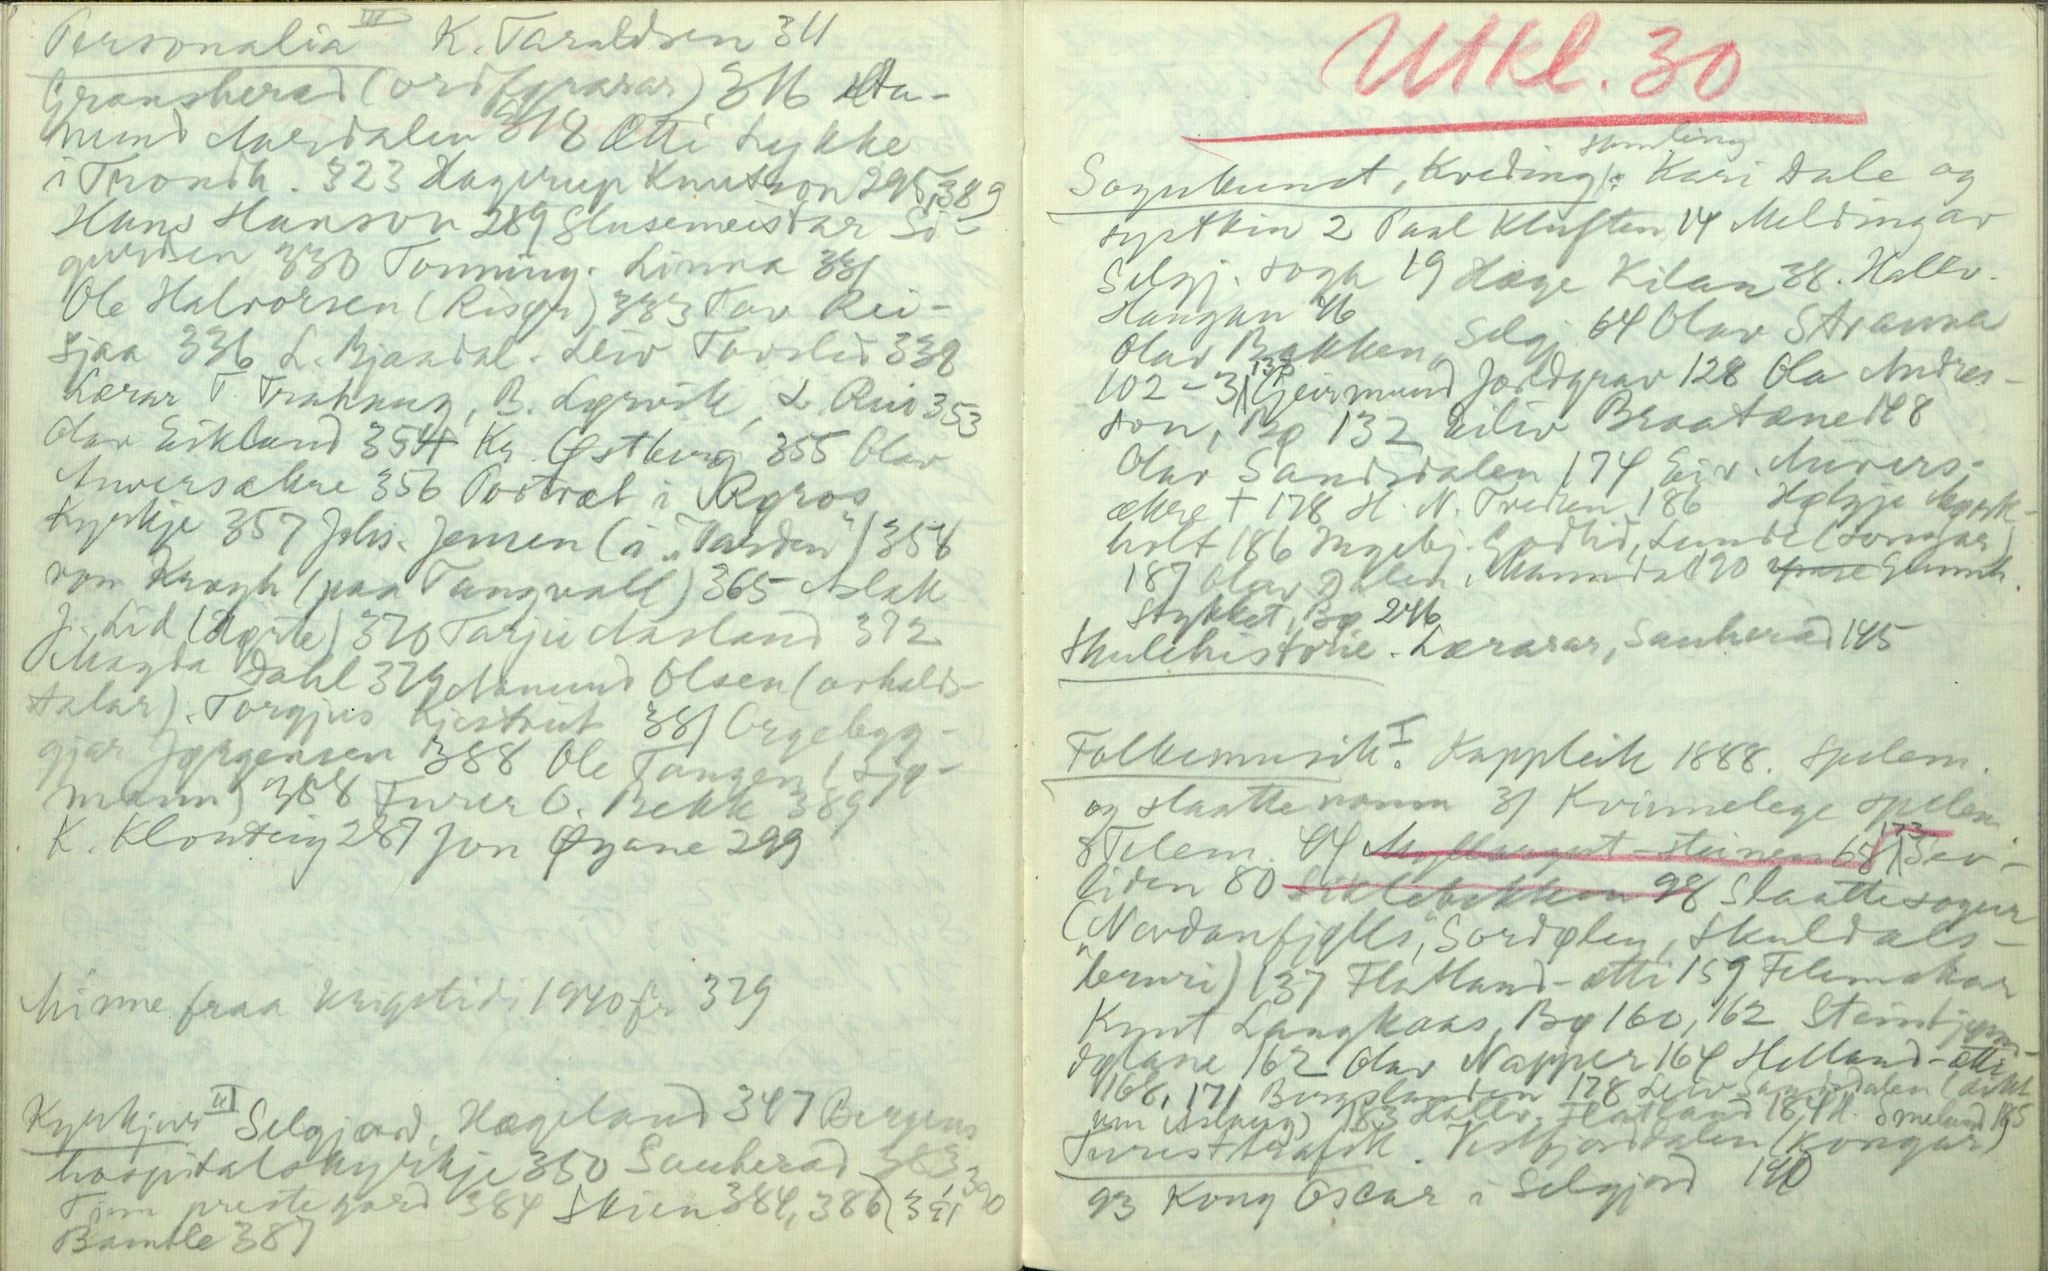 Personalia III K. Taraldsen 311
Gransherad (ordførarar) 316 Aa-
mund Aarsdalen 318 Ætti Lykke
i Trondh. 323 Hagerup Knutson 295, 389
Hans Hanson 289 Slusemeistar Si-
gurdsen 330 Tonning. Linna 331
Ole Halvorsen (Risør) 333 Tov Rei-
sjaa 336 L. Bjaadal. Leiv Tovslid 338
Lærar T. Trahaug, B. Lørvik, L. Rui 353
Olav Eikland 354 Kr. Østberg 355 Olav
Anversækre 356 Portræt i Røros
Kyrkje 357 Johs. Jensen (i "Varden") 358
von Krogh (paa Tangvall) 365 Aslak
J. Lid (Hørte) 370 Tarjei Aasland 372
Magda Dahl 379 Aamund Olsen (avhalds-
talar). Torgjus 381 Orgelbyg-
gjar Jørgensen 388 Ole Tangen (sjø-
mann) 388 Furer O. Bekk 389
K. Klonteig 287 Jon Øygane 299
Minne fraa krigstidi 1940 fr 379
Kyrkjur II Selgjord, Hægeland 347 Bergens
hospitalskyrkje 350 Sauherad 383, 390
Tinn prestegard 384 Skien 384, 386
Bamble 387
Utkl. 30
samling
Sogukunst, Kveding: Kari Dale og
systkin 2 Paal Kluften 14 Melding av
Selgj. soga 19 Hæge Kilan 38. Hallv.
Haugan 46
Olav Bakken, Selgj. 64 Olav Straana
102-31 138 Geirmund Jordgrav 128 Ola Andres-
son, Bø 132 Eiliv Braatane 148
Olav Sandsdalen 174 Eiv. Anvers-
ækre † 178 H. N. Tveden 186 Hølgje Mørk-
holt 186 Ingebj. Godlid, Lunde (songar)
187 Olav Dalen, Manndal 190 Gunnh.
Stykket, Bø 246
Skulehistorie. Lærarar, Sauherad 145
Folkemusik I: Kappleik 1888. Spelem.
og slaattenamn 31 Kvinnelege spelem.
i Telem. 44 Myllargut-steinen 68, 173 Sev-
liden 80 Siklebekken 98 Slaattesogur
("Nordanfjølls", Sordølen, Skuldals-
bruri) 137 Flatland-ætti 159 Felemakar
Knut Langkaas, Bø 160, 162 Steintjønn-
dølane 162 Olav Napper 164 Helland-ætti
168, 171 Bergslanden 178 Leiv Sandsdalen (dikt
um Aslaug) 183 Hallv. Flatland 184 H. Smeland 185
Turisttrafik. Vestfjorddalen (kongar)
93 Kong Oscar i Selgjord 140